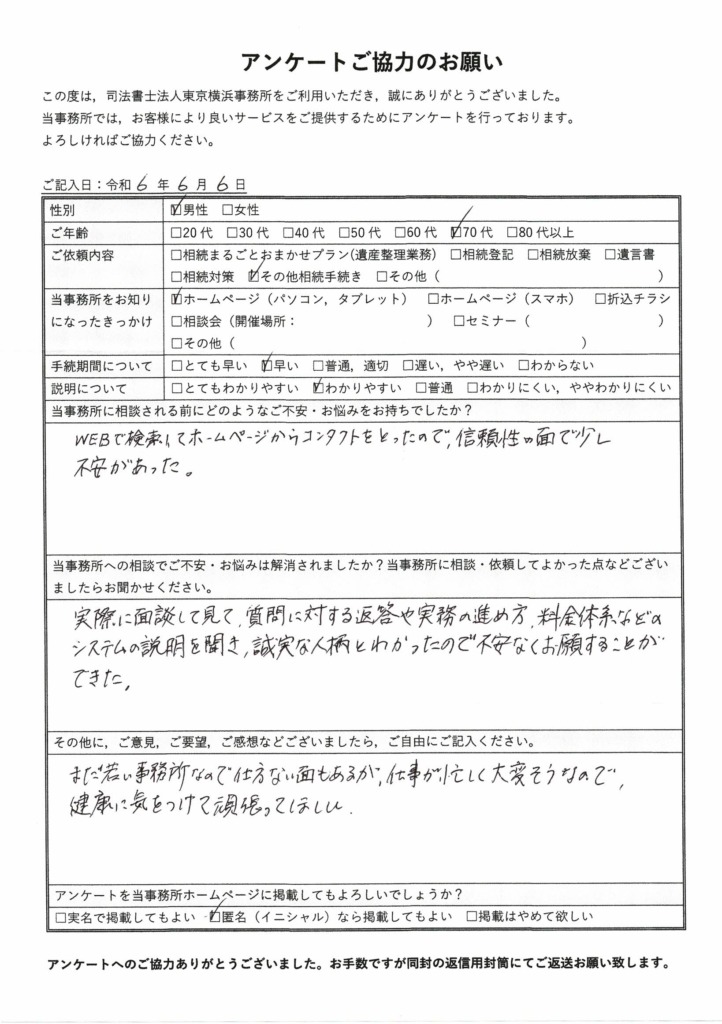 アンケートご協力のお願い
この度は，司法書士法人東京横浜事務所をご利用いただき，誠にありがとうございました。
当事務所では，お客様により良いサービスをご提供するためにアンケートを行っております。
よろしければご協力ください。
ご記入日：令和 6 年 6 月 6 日
性別 ☑男性 □女性
ご年齢 □20 代 □30 代 □40 代 □50 代 □60 代 ☑70 代 □80 代以上
ご依頼内容 □相続まるごとおまかせプラン(遺産整理業務) □相続登記 □相続放棄 □遺言書
□相続対策 ☑その他相続手続き □その他（ ）
当事務所をお知り ☑ホームページ（パソコン，タブレット） □ホームページ（スマホ） □折込チラシ
になったきっかけ □相談会（開催場所： ） □セミナー（ ）
□その他（ ）
手続期間について □とても早い ☑早い □普通，適切 □遅い，やや遅い □わからない
説明について □とてもわかりやすい ☑わかりやすい □普通 □わかりにくい，ややわかりにくい
当事務所に相談される前にどのようなご不安・お悩みをお持ちでしたか？
WEBで検索してホームページからコンタクトをとったので，信頼性の面で少し
不安があった。
当事務所への相談でご不安・お悩みは解消されましたか？当事務所に相談・依頼してよかった点などござい
ましたらお聞かせください。
実際に面談して見て，質問に対する返答や実務の進め方，料金体系などの
システムの説明を聞き，誠実な人柄とわかったので不安なくお願することが
できた。
その他に，ご意見，ご要望，ご感想などございましたら，ご自由にご記入ください。
まだ若い事務所なので仕方ない面もあるが，仕事が忙しく大変そうなので，
健康に気をつけて頑張ってほしい．
アンケートを当事務所ホームページに掲載してもよろしいでしょうか？
□実名で掲載してもよい ☑匿名（イニシャル）なら掲載してもよい □掲載はやめて欲しい
アンケートへのご協力ありがとうございました。お手数ですが同封の返信用封筒にてご返送お願い致します。